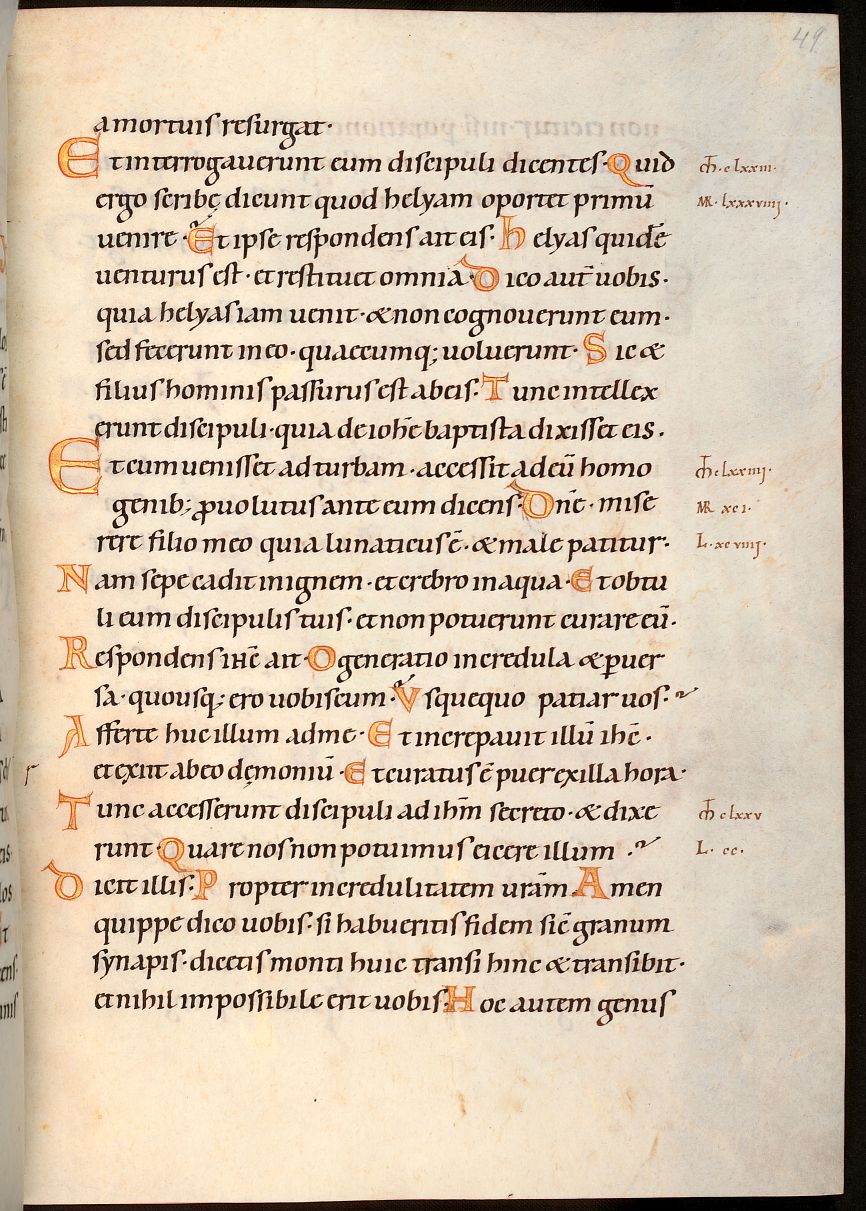 49
a mortuis resurgat·
Et interrogauerunt eum discipuli dicentes· Quid
ergo scribę dicunt quod helyam oportet primū
uenire· Et ipse respondens ait eis· Helyas quidē
uenturus est· et restituet omnia· Dico aut̄ uobis·
quia helyas iam uenit· & non cognouerunt eum·
sed fecerunt in eo· quaecumq; uoluerunt· Sic &
filius hominis passurus est ab eis· Tunc intellex
erunt discipuli· quia de ioh̄e baptista dixisset eis·
Et cum uenisset ad turbam· accessit ad eū homo
genib; ꝓuolutus ante eum dicens· Dn̄e· mise
rere filio meo quia lunaticus ē· & male patitur·
Nam sepe cadit in ignem· et crebro in aqua· Et obtu
li eum discipulis tuis· et non potuerunt curare eū·
Respondens ih̄c ait· O generatio incredula & ꝑuer
sa· quousq; ero uobiscum· Vsquequo patiar uos·
Afferte huc illum ad me· Et increpauit illū ih̄c·
et exiit ab eo dęmoniū· Et curatus ē puer ex illa hora·
Tunc accesserunt discipuli ad ih̄m secreto· & dixe
runt· Quare nos non potuimus eicere illum·
Dicit illis· Propter incredulitatem ur̄am· Amen
quippe dico uobis· si habueritis fidem sic̄ granum
synapis· dicetis monti huic transi hinc & transibit·
et nihil impossibile erit uobis· Hoc autem genus
clxxiii·
MR· lxxxviiij·
clxxiiij·
MR xci·
L· xcviiij·
clxxv
L· cc·